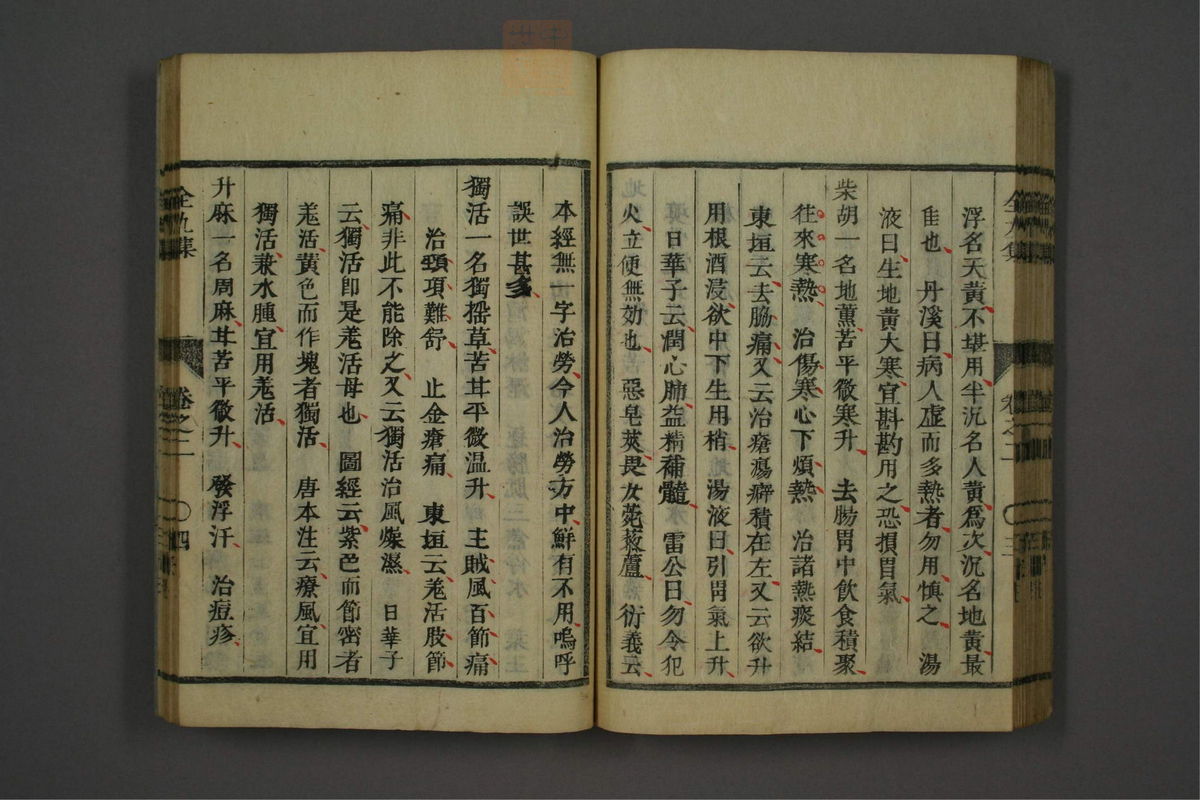 浮名天黄不堪用半沉名人黄爲次沉名地黄最
隹也 丹溪曰病人虚而多熱者勿用愼之 湯
液曰生地黄大寒宜斟酌用之恐損胃氣
柴胡一名地薫苦平微寒升 去腸胃中飲食積聚
徃來寒熱 治傷寒心下煩熱 治諸熱痰結
東垣云去脇痛又云治瘡瘍癖積在左又云欲升
用根酒浸欲中下生用梢 湯液曰引胃氣上升
日華子云潤心肺益精補髓 雷公曰勿令犯
火立便無効也 惡皂莢畏女菀蔾蘆 衍義云
本經無一字治勞今人治勞方中鮮有不用嗚呼
誤世甚多
獨活一名獨揺草苦甘平微温升 主賊風百節痛
治頸項難舒 止金瘡痛 東垣云羗活肢節
痛非此不能除之又云獨活治風燥濕 日華子
云獨活卽是羗活母也 圖經云紫色而節密者
羗活黄色而作塊者獨活 唐本注云療風宜用
獨活兼水腫宜用羗活
升麻一名周麻甘苦平微升 發浮汗 治痘疹
全九集
卷之二
四